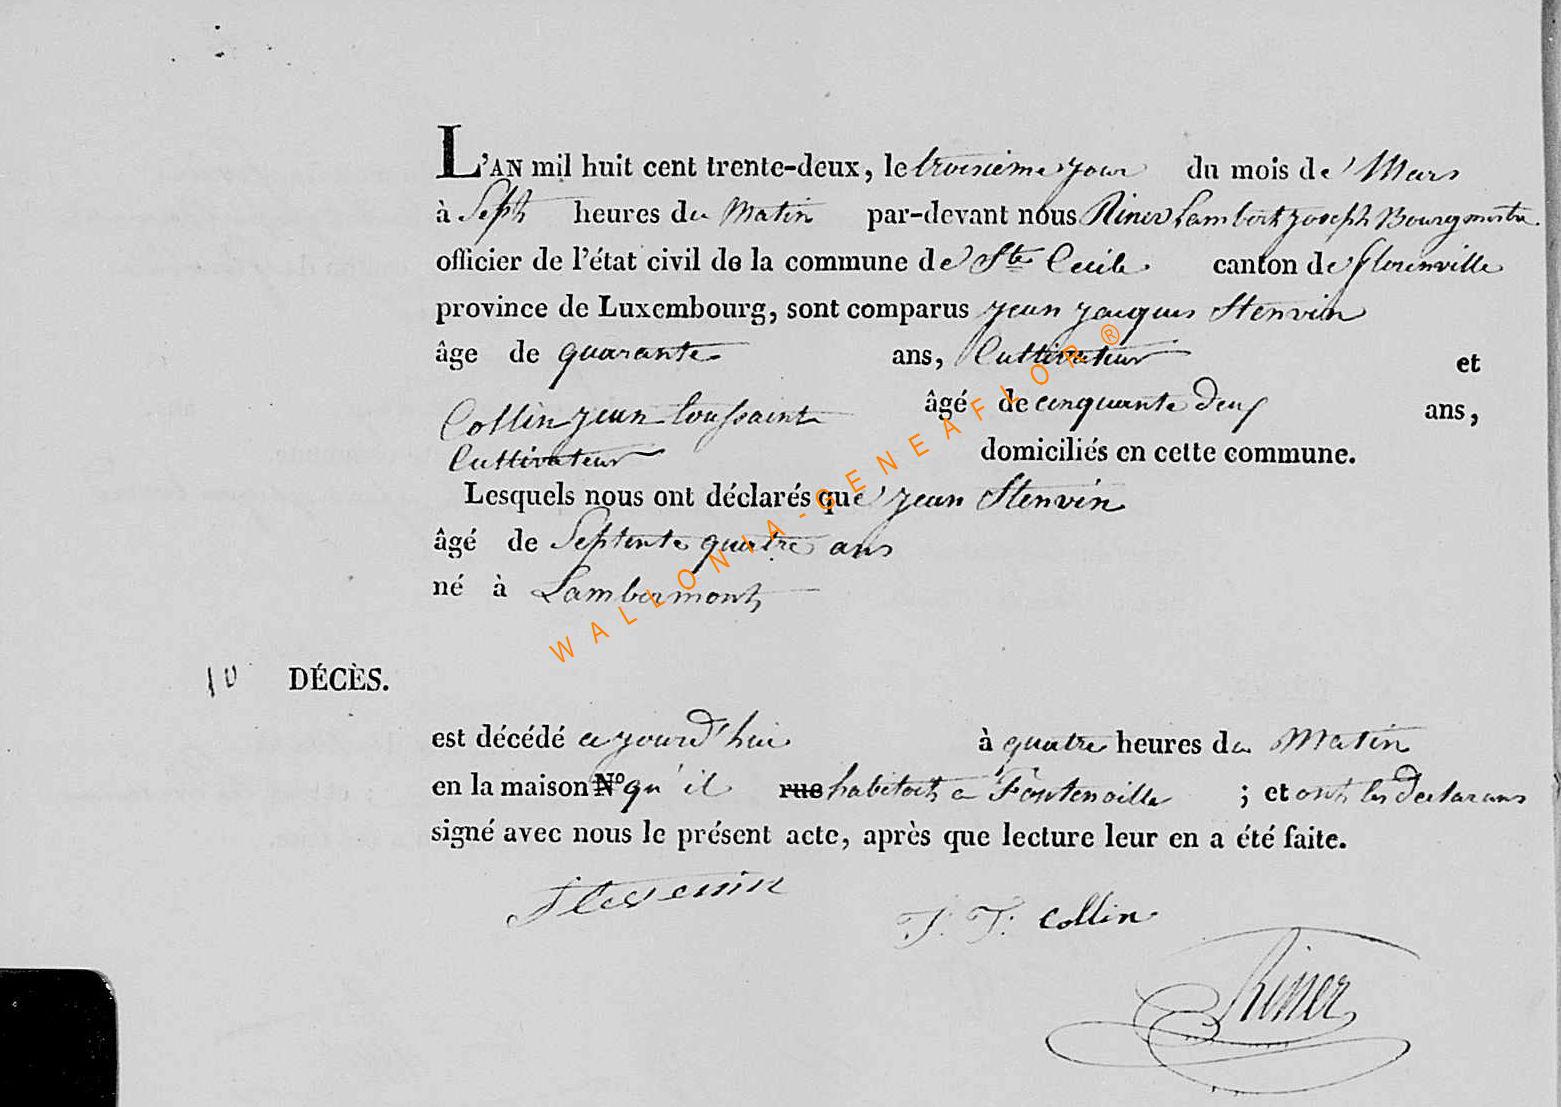 L'AN mil huit cent trente-deux, le troisieme jour du mois de Mars
à Sept heures du Matin par-devant nous Riner Lambert joseph Bourgmestre
officier de l'état civil de la commune de Ste Cecile canton de florenville
province de Luxembourg, sont comparus jean jacques Stenvin
âge de quarante ans, Cultivateur et
Collin jean toussaint âgé de cinquante deux ans,
Cultivateur domiciliés en cette commune.
Lesquels nous ont déclarés que jean Stenvin
âgé de Septente quatre ans
né à Lambermont
10 DÉCÈS.
est décédé cejourd'hui à quatre heures du Matin
en la maison N° qu'il rue habitoit a Fontenoille ; et ont les declarans
signé avec nous le présent acte, après que lecture leur en a été faite.
J. T. Collin
Riner
WALLONIA-GENEAFLOR ®